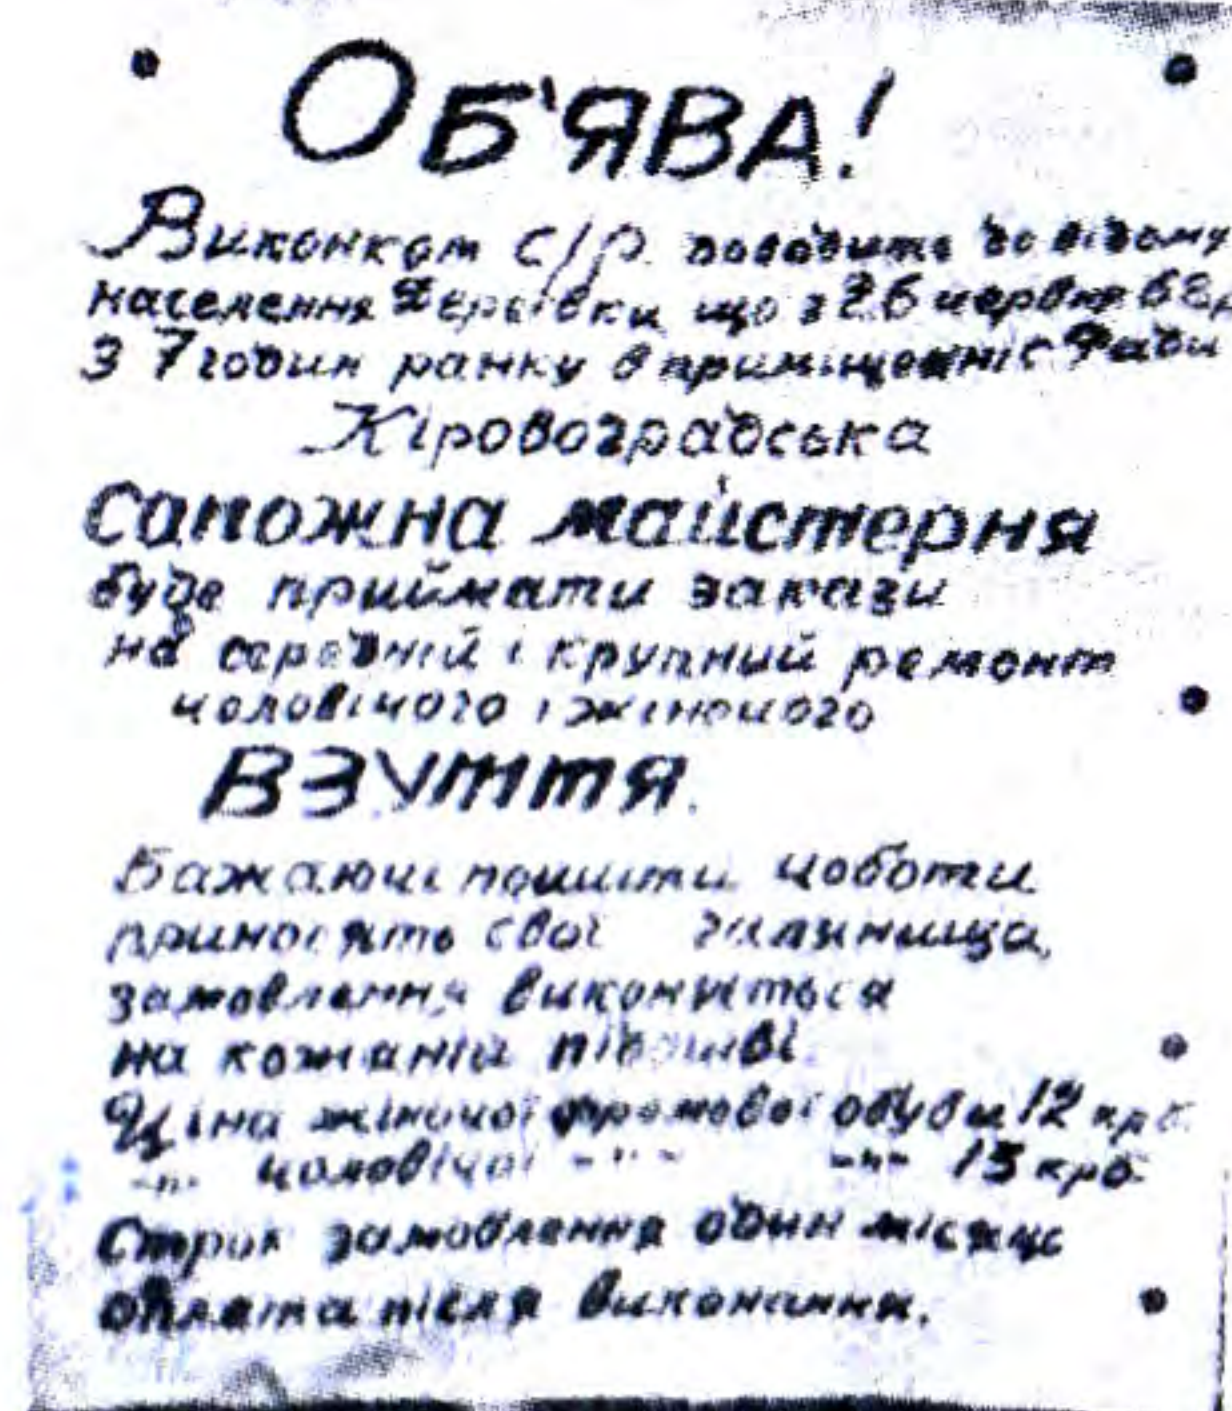 ОБ'ЯВА!
Виконком С/Р. доводить до відому
населення що з 26 червня 68р
З 7 годин ранку в приміщенні с Ради
Кіровоградська
сапожна майстерня
буде приймати закази
на середній і крупний ремонт
чоловічого і жіночого
ВЗУТТЯ.
Бажаючі пошити чоботи
приносять свої галянища,
замовлення виконується
на кожаній підошві.
Ціна жіночої хромової обуви 12 крб.
-"- чоловічої -"- -"- 15 крб.
Строк замовлення один місяць
оплата після виконання.